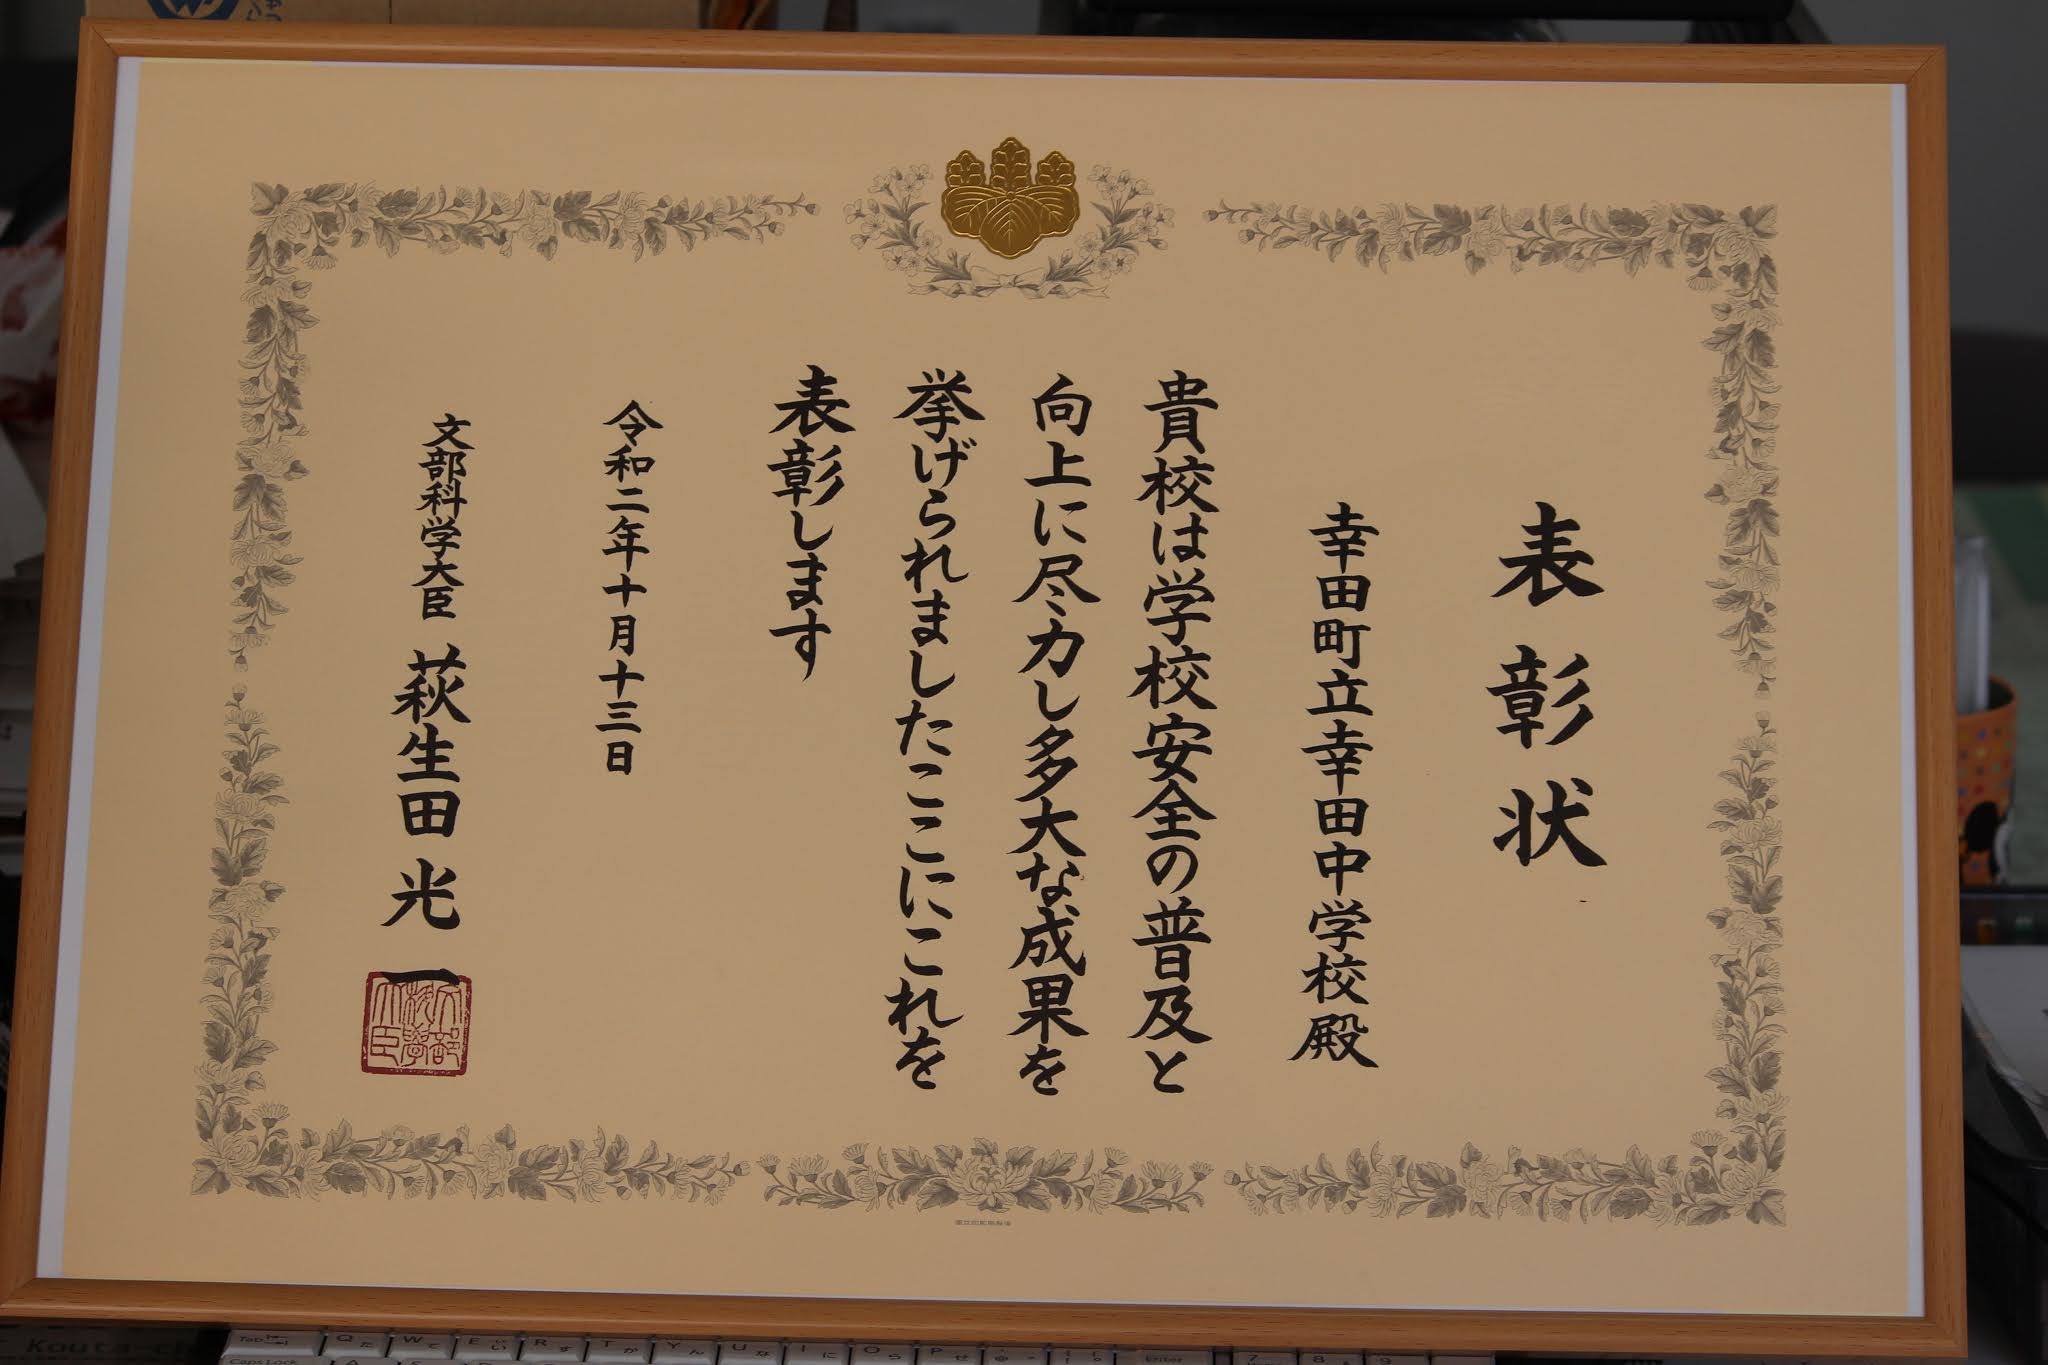 表彰状
幸田町立幸田中学校殿
貴校は学校安全の普及と
向上に尽力し多大な成果を
挙げられましたここにこれを
表彰します
令和二年十月十三日
文部科学大臣 萩生田光一
文部科学大臣
Kouta-c
Tab Q た W て E い R す T か Y ん U な I に O ら P せ
Caps Lock
Enter 7 8 9